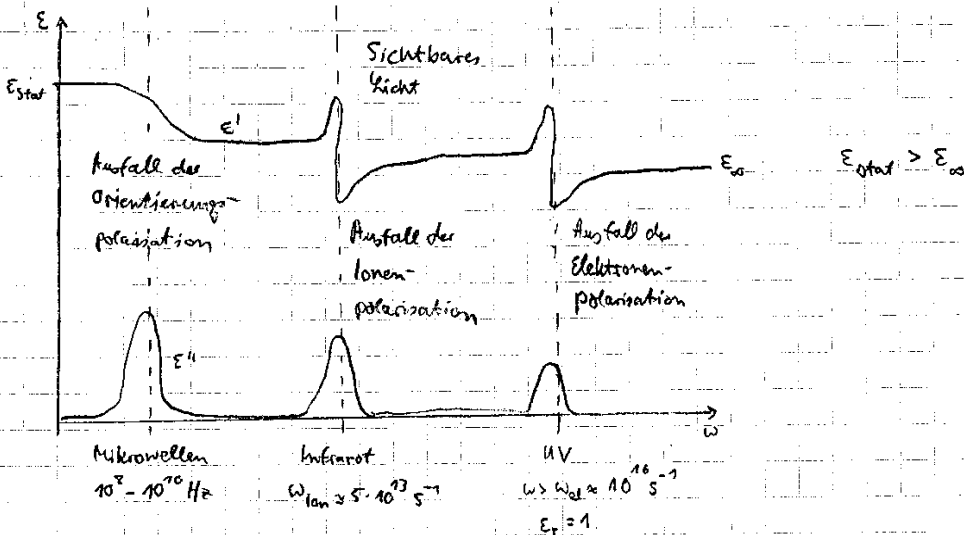 ε
Sichtbares
Licht
ε_stat
ε'
ε_∞
ε_stat > ε_∞
Ausfall der
Orientierungs-
polarisation
Ausfall der
Ionen-
polarisation
Ausfall der
Elektronen-
polarisation
ε''
ω
Mikrowellen
10⁸ - 10¹⁰ Hz
Infrarot
ω_Ion ≈ 5 · 10¹³ s⁻¹
UV
ω > ω_el ≈ 10¹⁶ s⁻¹
ε_r = 1